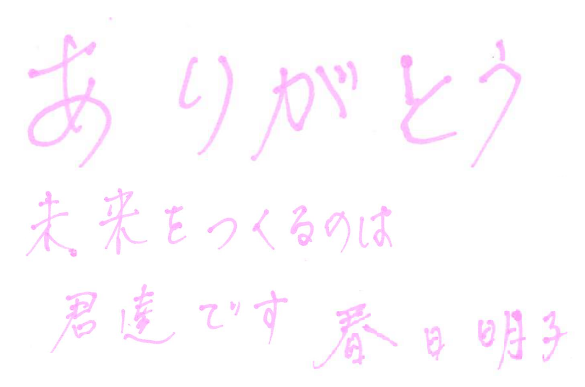 ありがとう
未来をつくるのは
君達です 春日明子